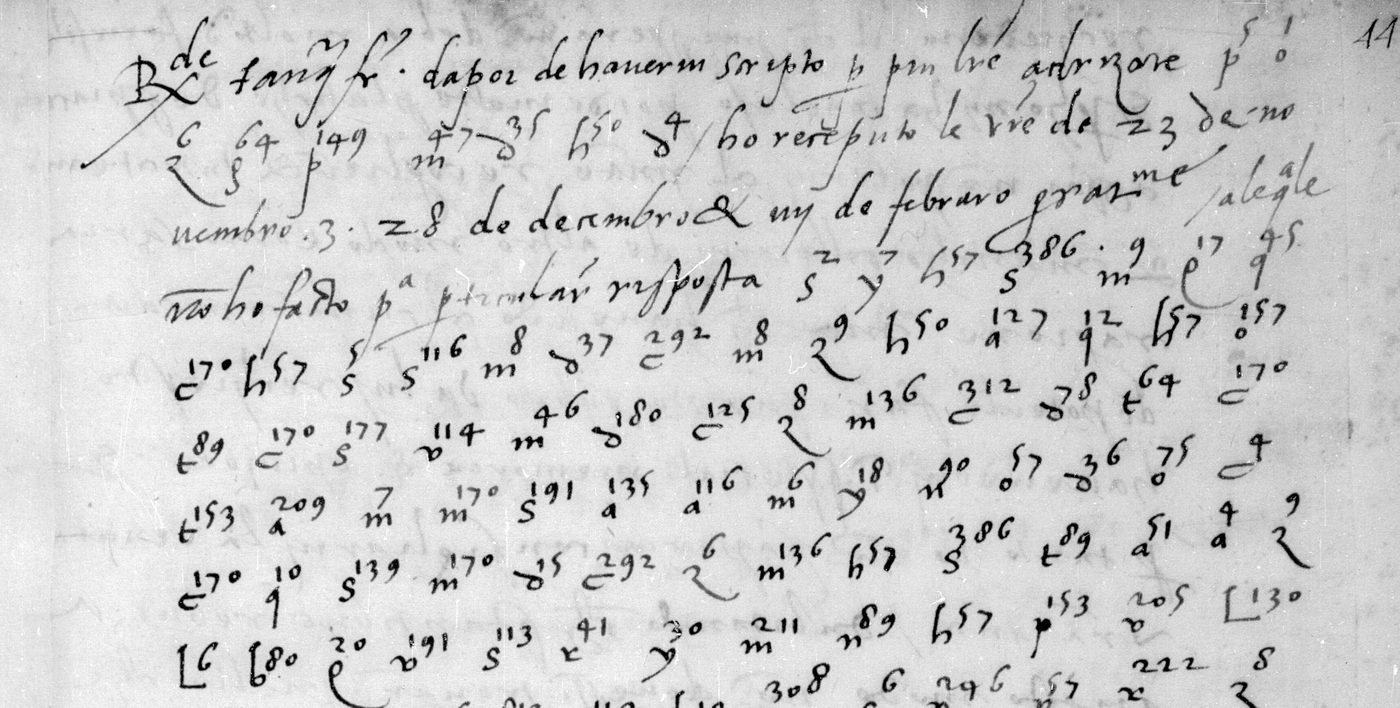 44
R^de tanq^ fr^ . dapoi de haverui scripto p piu lre adrizate p^5 o^1
z^6 g^64 p^149 m^47 d^35 h^50 d^4 / ho receputo le vre de 23 de no
uembro . 3 . 28 de decembro & vij de febraro grat^me / aleq^ale
no ho facto p^a pticular risposta s^2 y^7 h^57 s^386 . m^9 e^17 q^45
c^170 h^57 s^5 s^116 m^8 d^37 c^292 m^8 z^9 h^50 a^127 q^12 h^57 o^157
t^89 c^170 s^177 v^114 m^46 d^180 c^125 z^8 m^136 c^312 d^78 t^64 c^170
t^153 a^209 m^7 m^170 s^191 a^135 a^116 m^6 y^18 n^90 o^57 d^36 o^75 c^4
c^170 q^10 s^139 m^170 d^15 c^292 z^6 m^136 h^57 s^386 t^89 a^51 a^4 z^9
l^6 b^80 e^20 v^191 s^113 x^41 y^30 m^211 n^89 h^57 p^153 v^205 l^130
308 6 246 57 x^222 z^8